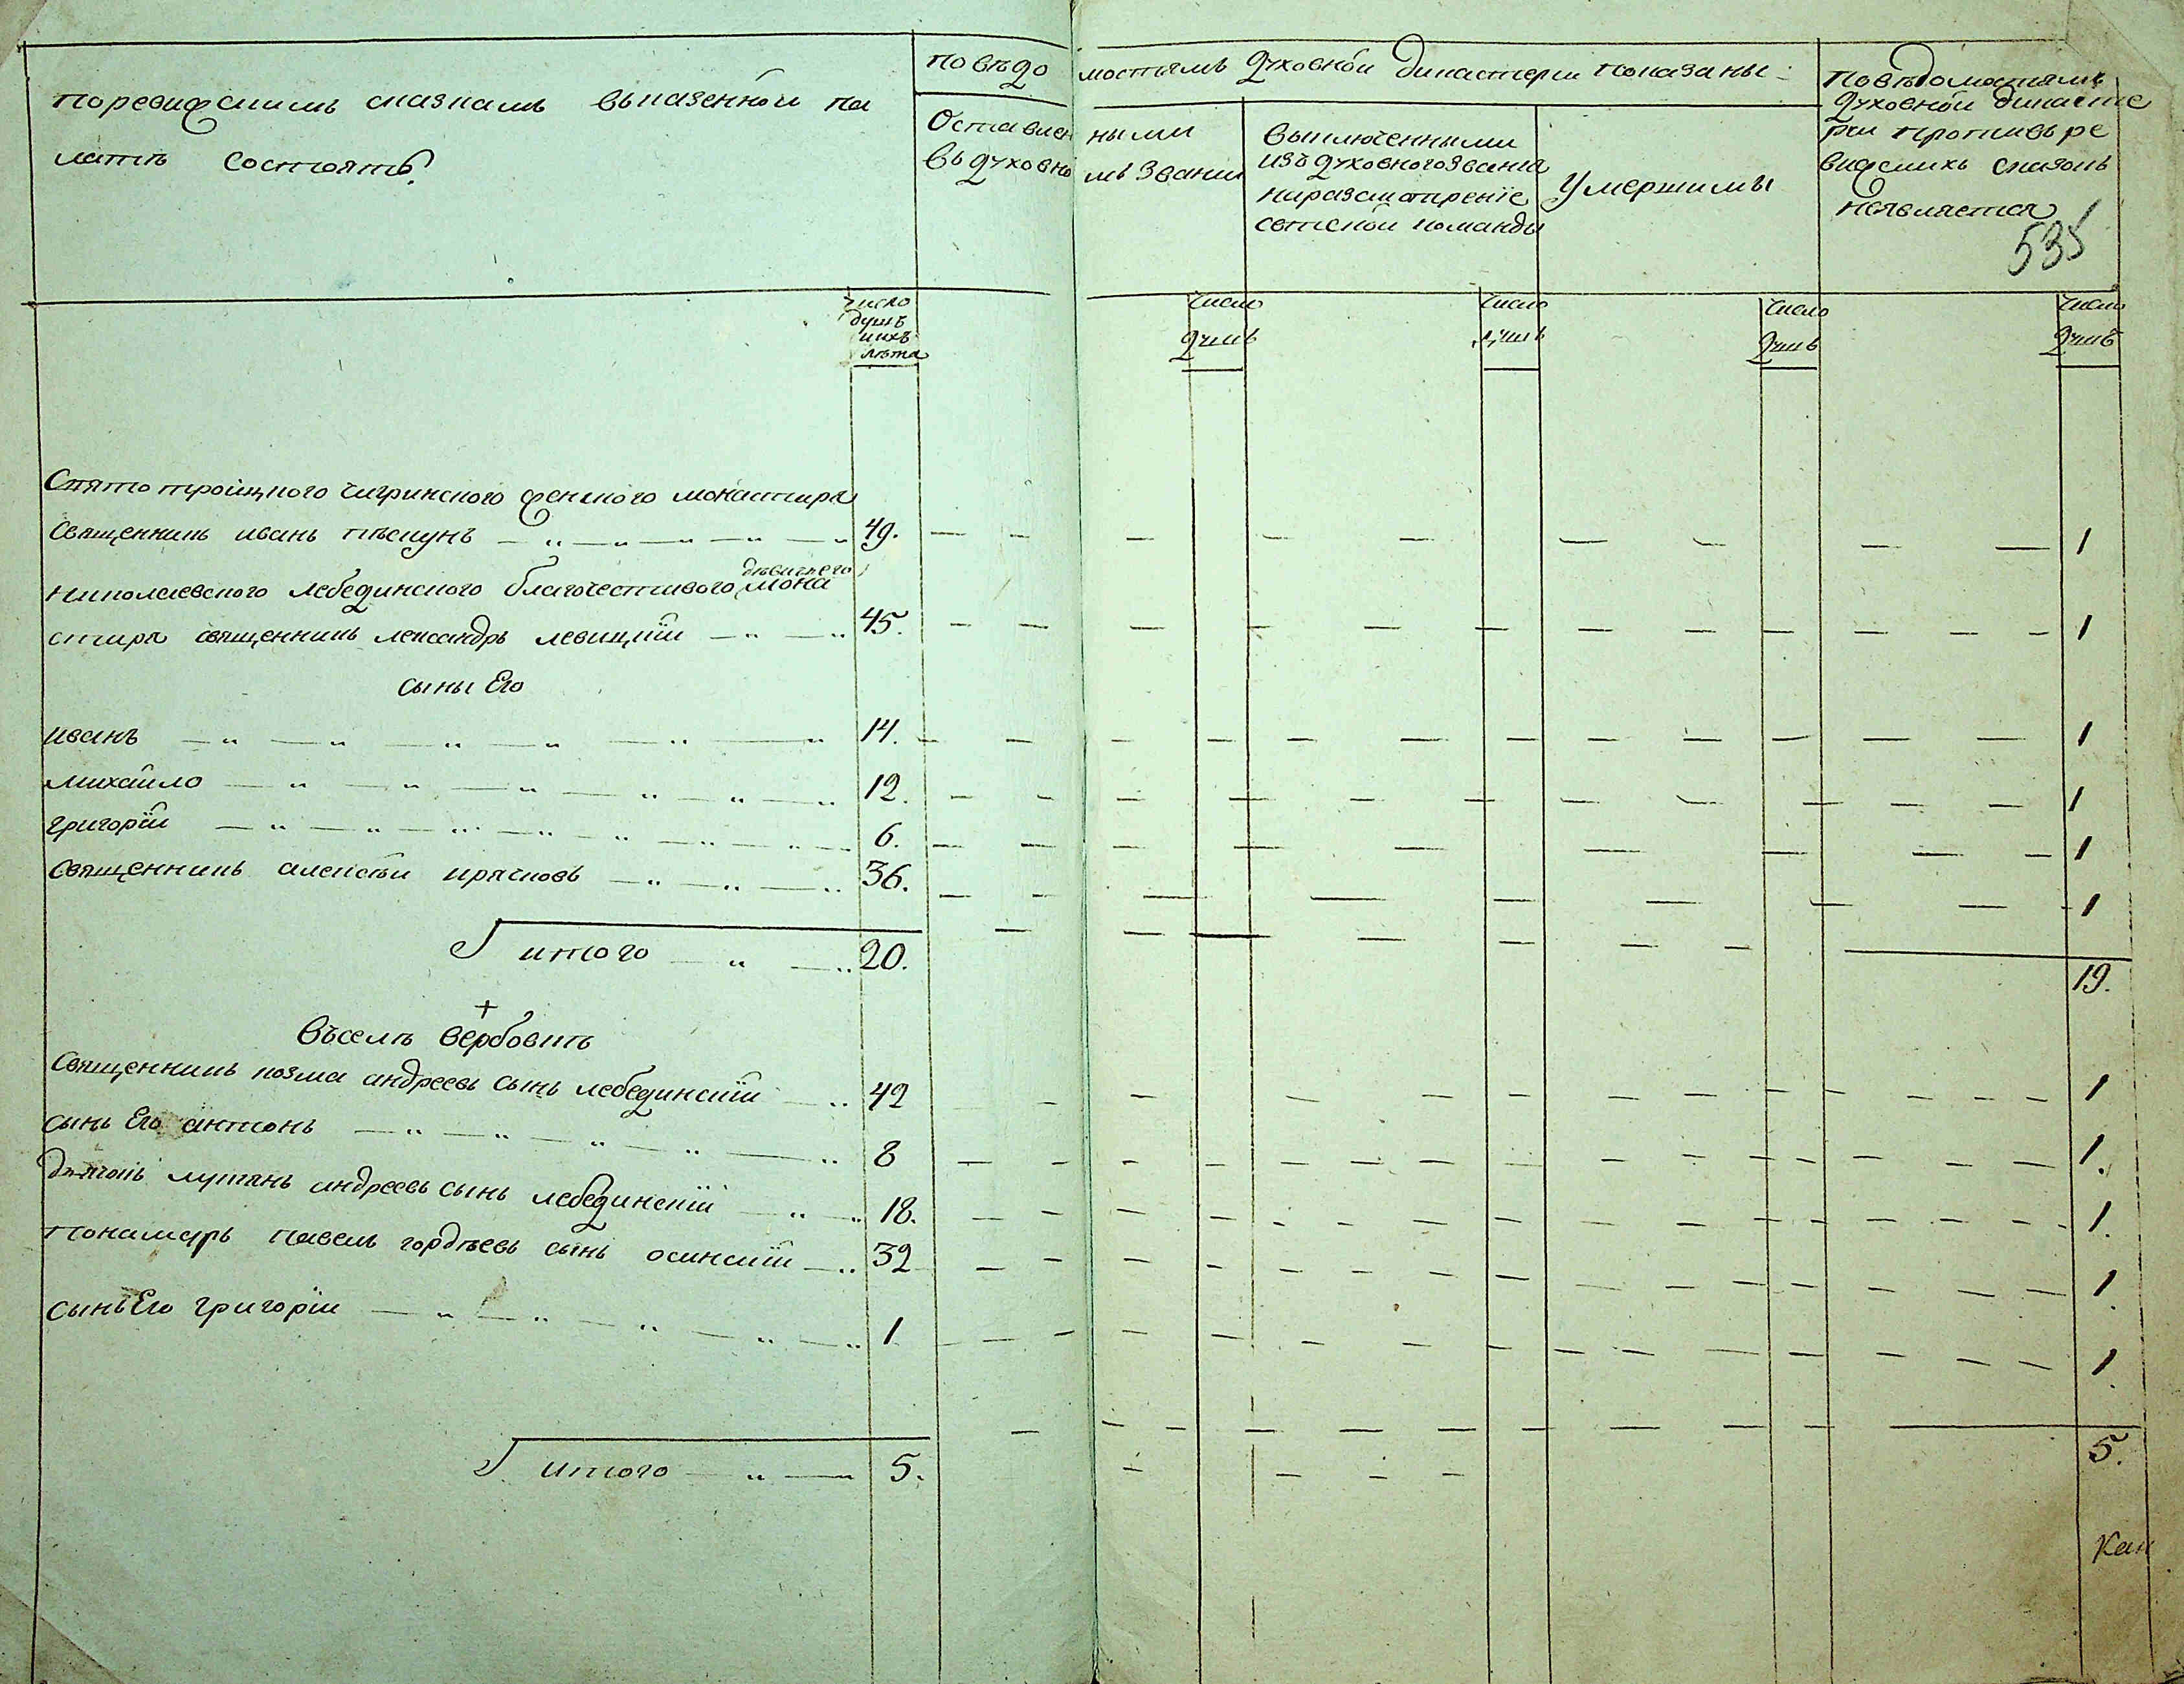 по ревижскимъ сказкамъ вьказенной па
латѣ состоятъ
по вѣдо мостямъ духовной дикастерии показаны
Оставлен ными
въ духовно мъ звании
выключенными
изъ духовного звания
на разсмотрение
светской команды
Умершимы
по вѣдомостямъ
духовной дикасте
рии противъ ре
вижскихъ сказокъ
неявляется
535
число
душъ
и ихъ
лѣта
число
душъ
число
душъ
число
душъ
число
душъ
Святотроицкого чигринского женского монастиря
священникъ иванъ пѣскунъ 49. 1
дѣвичего
николаевского лебединского благочестивого мона
стиря священникъ лександръ левицкий 45. 1
сыны Его
иванъ 14. 1
михайло 12. 1
григорий 6. 1
священникъ алексѣй крячковъ 36. 1
итого 20. 19.
въселѣ вербовкѣ
Священникъ козма андреевъ сынъ лебединский 42 1
сынъ Его антонъ 8 1.
дьячокъ лукянъ андреевъ сынъ лебединский 18. 1.
понамарь павелъ гордѣевъ сынъ осинский 32 1.
сынъ Его григорий 1 1.
итого 5. 5.
Кан